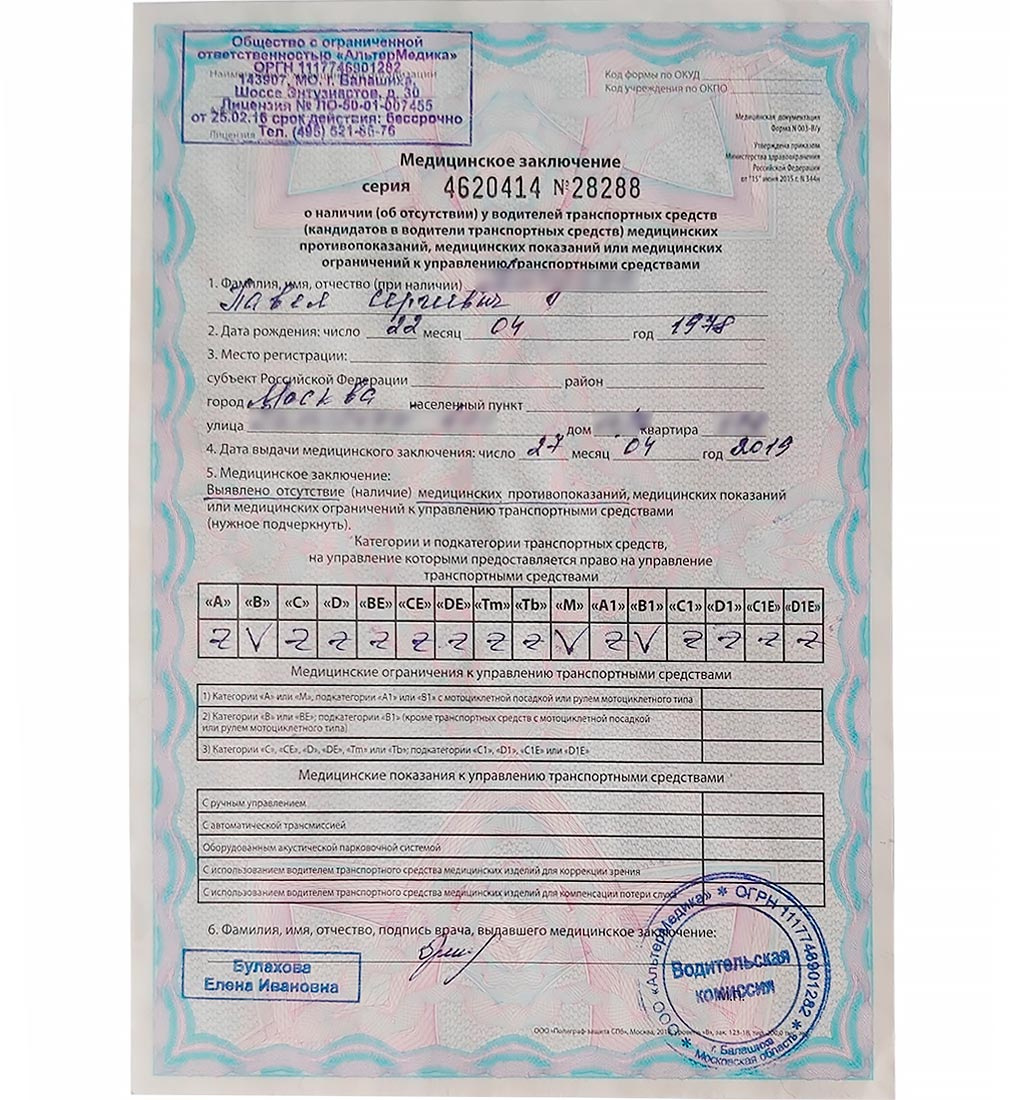 Общество с ограниченной
ответственностью «АльтерМедика»
ОРГН 1117746901282
143907, МО. г. Балашиха,
Шоссе Энтузиастов, д. 30
Лицензия № ЛО-50-01-007455
от 25.02.16 срок действия: бессрочно
Тел. (495) 521-85-76
Код формы по ОКУД
Код учреждения по ОКПО
Медицинская документация
Форма N 003-В/у
Утверждена приказом
Министерства здравоохранения
Российской Федерации
от "15" июня 2015 г. N 344н
Медицинское заключение
серия 4620414 №28288
о наличии (об отсутствии) у водителей транспортных средств
(кандидатов в водители транспортных средств) медицинских
противопоказаний, медицинских показаний или медицинских
ограничений к управлению транспортными средствами
1. Фамилия, имя, отчество (при наличии)
Павел Сергеевич
2. Дата рождения: число 22 месяц 04 год 1978
3. Место регистрации:
субъект Российской Федерации район
город Москва населенный пункт
улица дом квартира
4. Дата выдачи медицинского заключения: число 27 месяц 04 год 2019
5. Медицинское заключение:
Выявлено отсутствие (наличие) медицинских противопоказаний, медицинских показаний
или медицинских ограничений к управлению транспортными средствами
(нужное подчеркнуть).
Категории и подкатегории транспортных средств,
на управление которыми предоставляется право на управление
транспортными средствами
«A» «B» «C» «D» «BE» «CE» «DE» «Tm» «Tb» «M» «A1» «B1» «C1» «D1» «C1E» «D1E»
Z V Z Z Z Z Z Z Z V Z V Z Z Z Z
Медицинские ограничения к управлению транспортными средствами
1) Категории «A» или «M», подкатегории «A1» или «B1» с мотоциклетной посадкой или рулем мотоциклетного типа
2) Категории «B» или «BE»; подкатегории «B1» (кроме транспортных средств с мотоциклетной посадкой
или рулем мотоциклетного типа)
3) Категории «C», «CE», «D», «DE», «Tm» или «Tb»; подкатегории «C1», «D1», «C1E» или «D1E»
Медицинские показания к управлению транспортными средствами
С ручным управлением
С автоматической трансмиссией
Оборудованным акустической парковочной системой
С использованием водителем транспортного средства медицинских изделий для коррекции зрения
С использованием водителем транспортного средства медицинских изделий для компенсации потери слуха
6. Фамилия, имя, отчество, подпись врача, выдавшего медицинское заключение:
Булахова
Елена Ивановна
ООО «АльтерМедика» * ОГРН 1117746901282 *
Водительская
комиссия
М.П.
г. Балашиха
Московская область
ООО «Полиграф-защита СПб», Москва, зак. 123-18